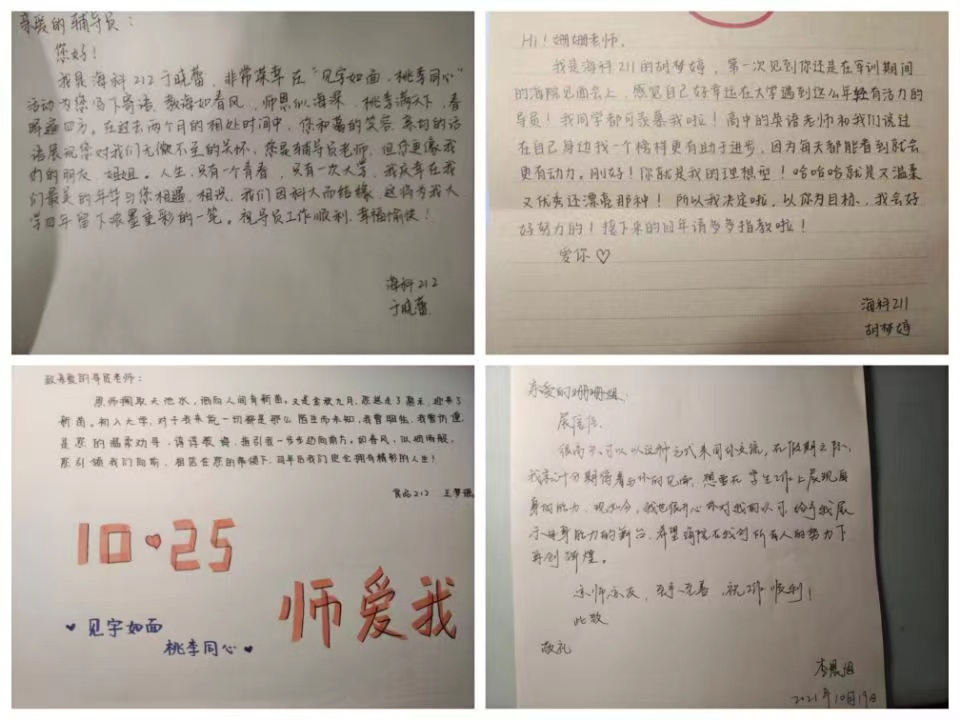 亲爱的辅导员：
您好！
我是海科212于晓蕾，非常荣幸在“见字如面，桃李同心”
活动为您写下寄语。教海如春风，师恩似海深，桃李满天下，春
晖遍四方。在过去两个月的相处时间中，您和蔼的笑容，亲切的话
语展现您对我们无微不至的关怀，您是辅导员老师，但您更像我
们的朋友、姐姐。人生，只有一个青春，只有一次大学，我庆幸在我
们最美的年华与您相遇、相识，我们因科大而结缘，这将为我大
学四年留下浓墨重彩的一笔。祝导员工作顺利，幸福愉快！
海科212
于晓蕾
Hi！姗姗老师，
我是海科211的胡梦婷，第一次见到你还是在军训期间
的海院见面会上，感觉自己好幸运在大学遇到这么年轻有活力的
导员！我同学都可羡慕我啦！高中的英语老师和我们说过
在自己身边找一个榜样更有助于进步，因为每天都能看到就会
更有动力。刚好！你就是我的理想型！哈哈哈就是又温柔
又优秀还漂亮那种！所以我决定啦，以你为目标，我会好
好努力的！接下来的四年请多多指教啦！
爱你♡
海科211
胡梦婷
致亲爱的导员老师：
恩师掬取天池水，洒向人间育新苗。又是金秋九月，您送走了离末，迎来了
新苗。初入大学，对于我来说一切都是那么陌生而未知，我曾胆怯，我曾彷徨
是您的温柔劝导，谆谆教诲，指引我一步步动向前方。如春风，似细雨般。
您引领我们向前，相信在您的带领下，四年后我们定会拥有精彩的人生！
食品212 王梦
10·25
师爱我
见字如面
桃李同心
亲爱的珊珊姐：
展信佳。
很高兴可以以这种方式来同你交流，在假期之际，
我就十分期待着与你的见面，想要在学生工作上展现自
身的能力，现如今，我也很开心你对我的认可，给予我展
示自身能力的舞台，希望海院在我们所有人的努力下
再创辉煌。
亦师亦友，至真至善，祝工作顺利！
此致
敬礼
李
2021年10月19日